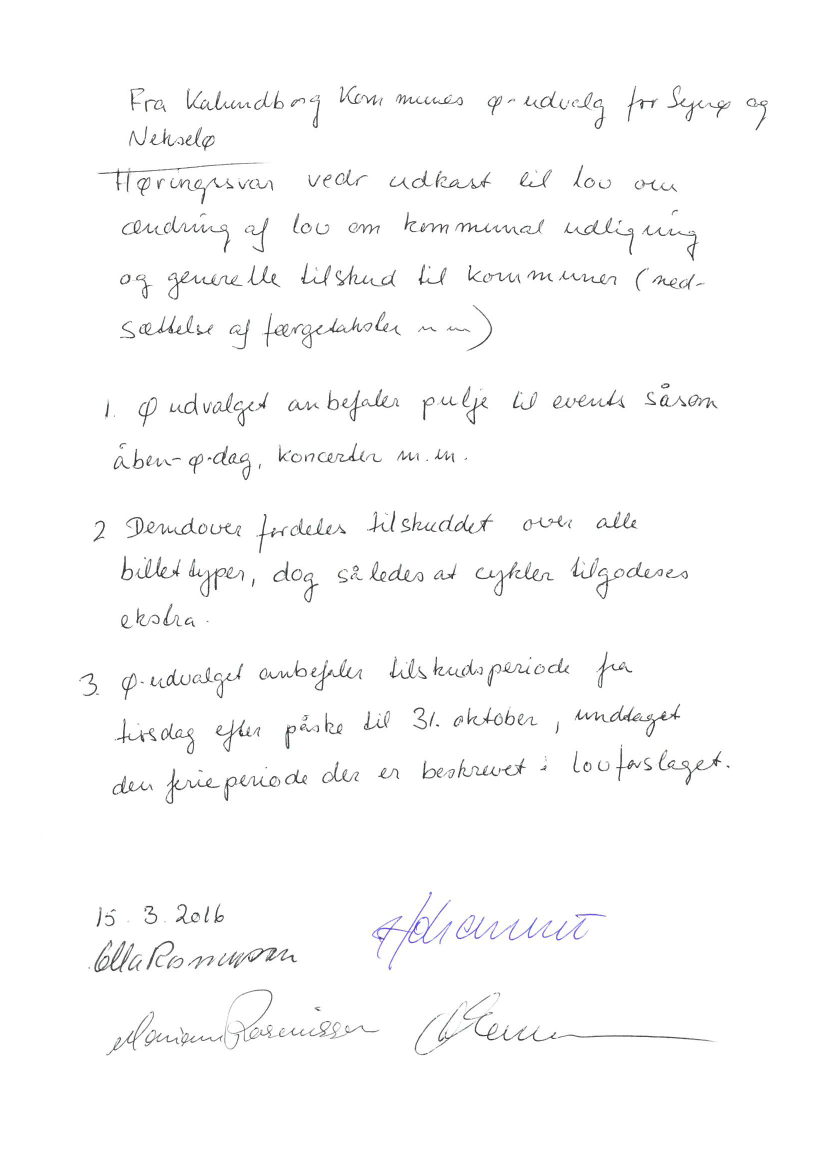 Fra Kalundborg Kommunes ø-udvalg for Sejerø og
Nekselø
Høringssvar vedr udkast til lov om
ændring af lov om kommunal udligning
og generelle tilskud til kommuner (ned-
sættelse af færgetakster m m)
1. Ø udvalget anbefaler pulje til events såsom
åben-ø-dag, koncerter m.m.
2 Derudover fordeles tilskuddet over alle
billettyper, dog således at cykler tilgodeses
ekstra.
3. Ø-udvalget anbefaler tilskudsperiode fra
tirsdag efter påske til 31. oktober, undtaget
den ferieperiode der er beskrevet i lovforslaget.
15.3.2016
Ella Rasmussen
Mariann Rasmussen